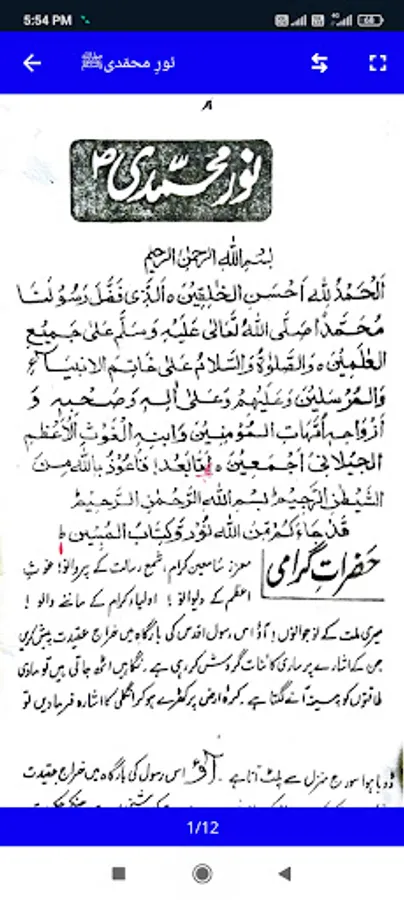 5:54 PM
4G 68
نورِ محمّدی ﷺ
۸
نور محمّدی ؐ
بِسْمِ اللّٰهِ الرَّحْمٰنِ الرَّحِیْمِ
اَلْحَمْدُ لِلّٰهِ اَحْسَنِ الْخٰلِقِیْنَ ہ اَلَّذِیْ فَضَّلَ رَسُوْلَنَا
مُحَمَّدًا صَلَّی اللّٰهُ تَعَالٰی عَلَیْهِ وَسَلَّمَ عَلٰی جَمِیْعِ
الْعٰلَمِیْنَ ہ وَالصَّلٰوةُ وَالسَّلَامُ عَلٰی خَاتِمِ الْاَنْبِیَاءِ
وَالْمُرْسَلِیْنَ وَعَلَیْهِمْ وَعَلٰی اٰلِهٖ وَصَحْبِهٖ وَ
اَزْوَاجِهٖ اُمَّهَاتِ الْمُؤْمِنِیْنَ وَابْنِهِ الْغَوْثِ الْاَعْظَمِ
الْجِیْلَانِیْ اَجْمَعِیْنَ ہ اَمَّا بَعْدُ! فَاَعُوْذُ بِاللّٰهِ مِنَ
الشَّیْطٰنِ الرَّجِیْمِ بِسْمِ اللّٰهِ الرَّحْمٰنِ الرَّحِیْمِ
قَدْ جَآءَكُمْ مِّنَ اللّٰهِ نُوْرٌ وَّكِتَابُ الْمُبِیْنِ ط
حضراتِ گرامی
معزز سامعین کرام، شمع رسالت کے پروانو! غوثِ
اعظم کے دیوانو! اولیاء کرام کے ماننے والو!
میری ملت کے نوجوانوں! آؤ اس رسول اقدس کی بارگاہ میں خراج عقیدت پیش کریں
جن کے اشارے پر ساری کائنات گردش کر رہی ہے۔ نگاہیں اٹھ جاتی ہیں تو مادی
طاقتوں کو پسینہ آنے لگتا ہے۔ کرہ ارض پر کھڑے ہو کر انگلی کا اشارہ فرمادیں تو
ڈوبا ہوا سورج منزل سے پلٹ آتا ہے۔ آؤ اس رسول کی بارگاہ میں خراج عقیدت
1/12